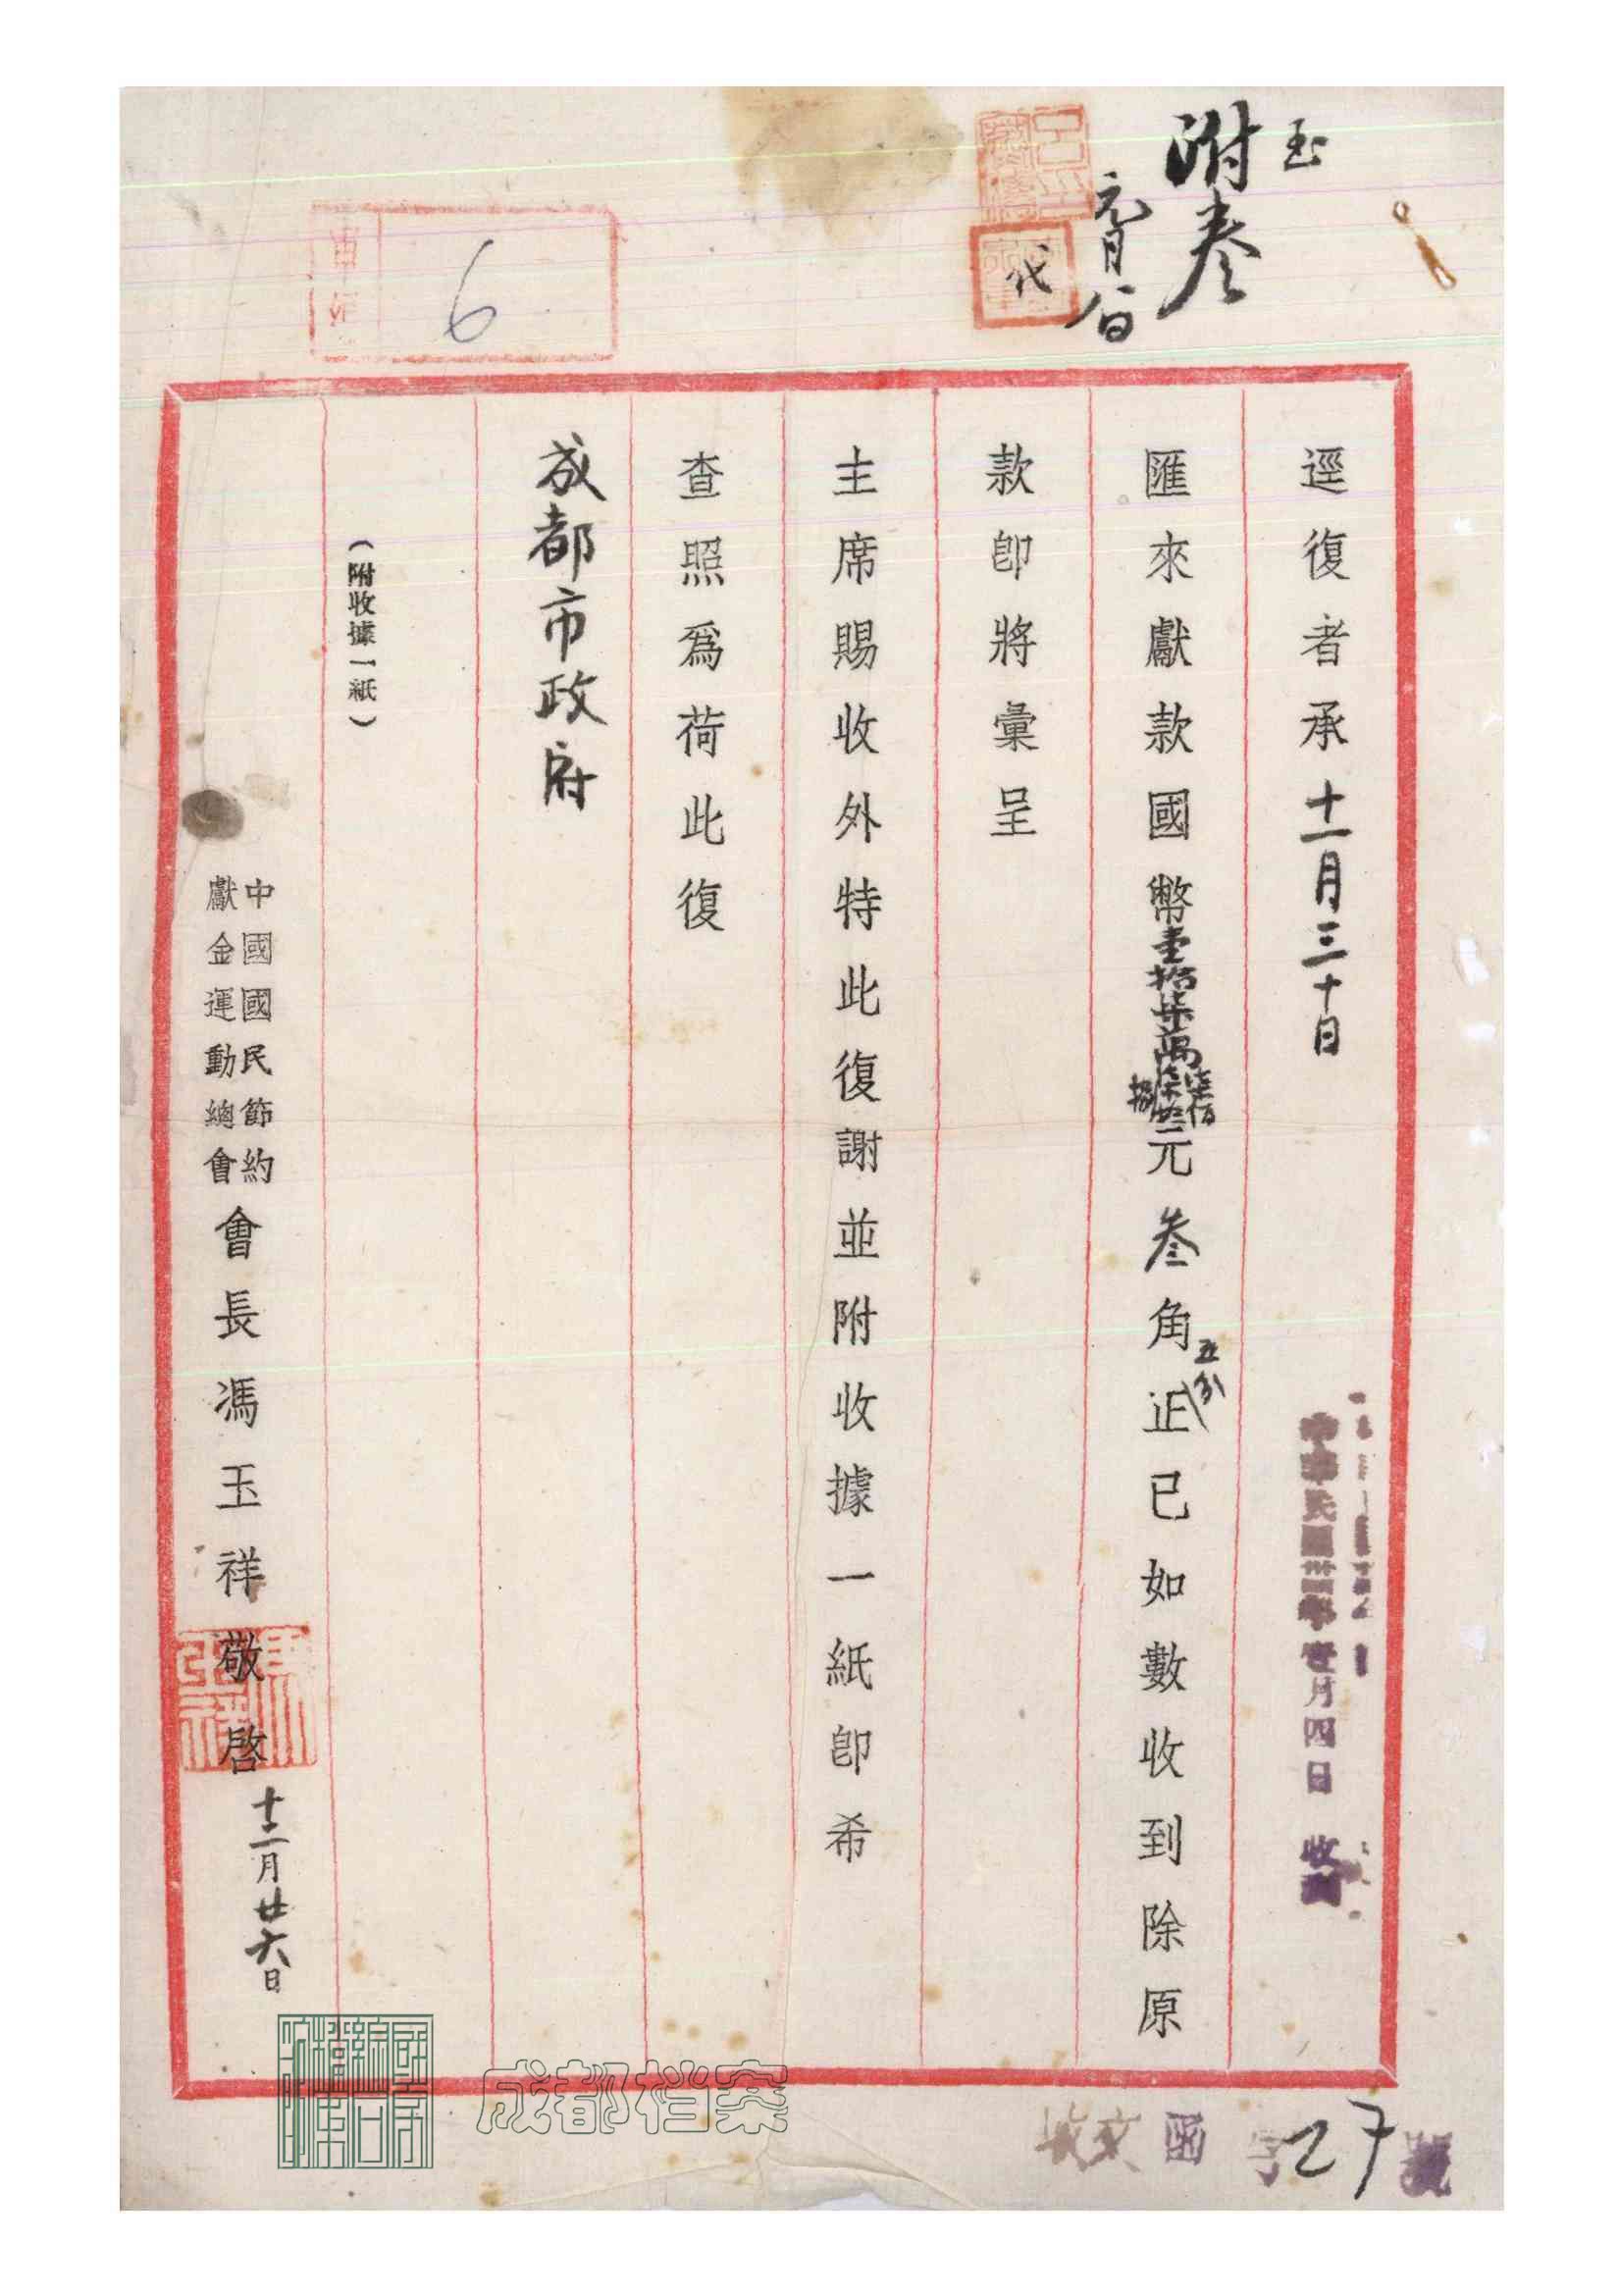 附卷
元月 日
代
6
逕復者承十一月三十日
中華民國卅四年壹月四日 收到
匯來獻款國幣壹拾柒萬柒仟柒佰捌拾元叁角五分正已如數收到除原
款卽將彙呈
主席賜收外特此復謝並附收據一紙卽希
查照爲荷此復
成都市政府
(附收據一紙)
中國國民節約
獻金運動總會
會長馮玉祥敬啓十二月廿六日
馮玉祥
成都档案
收文 函 字27號